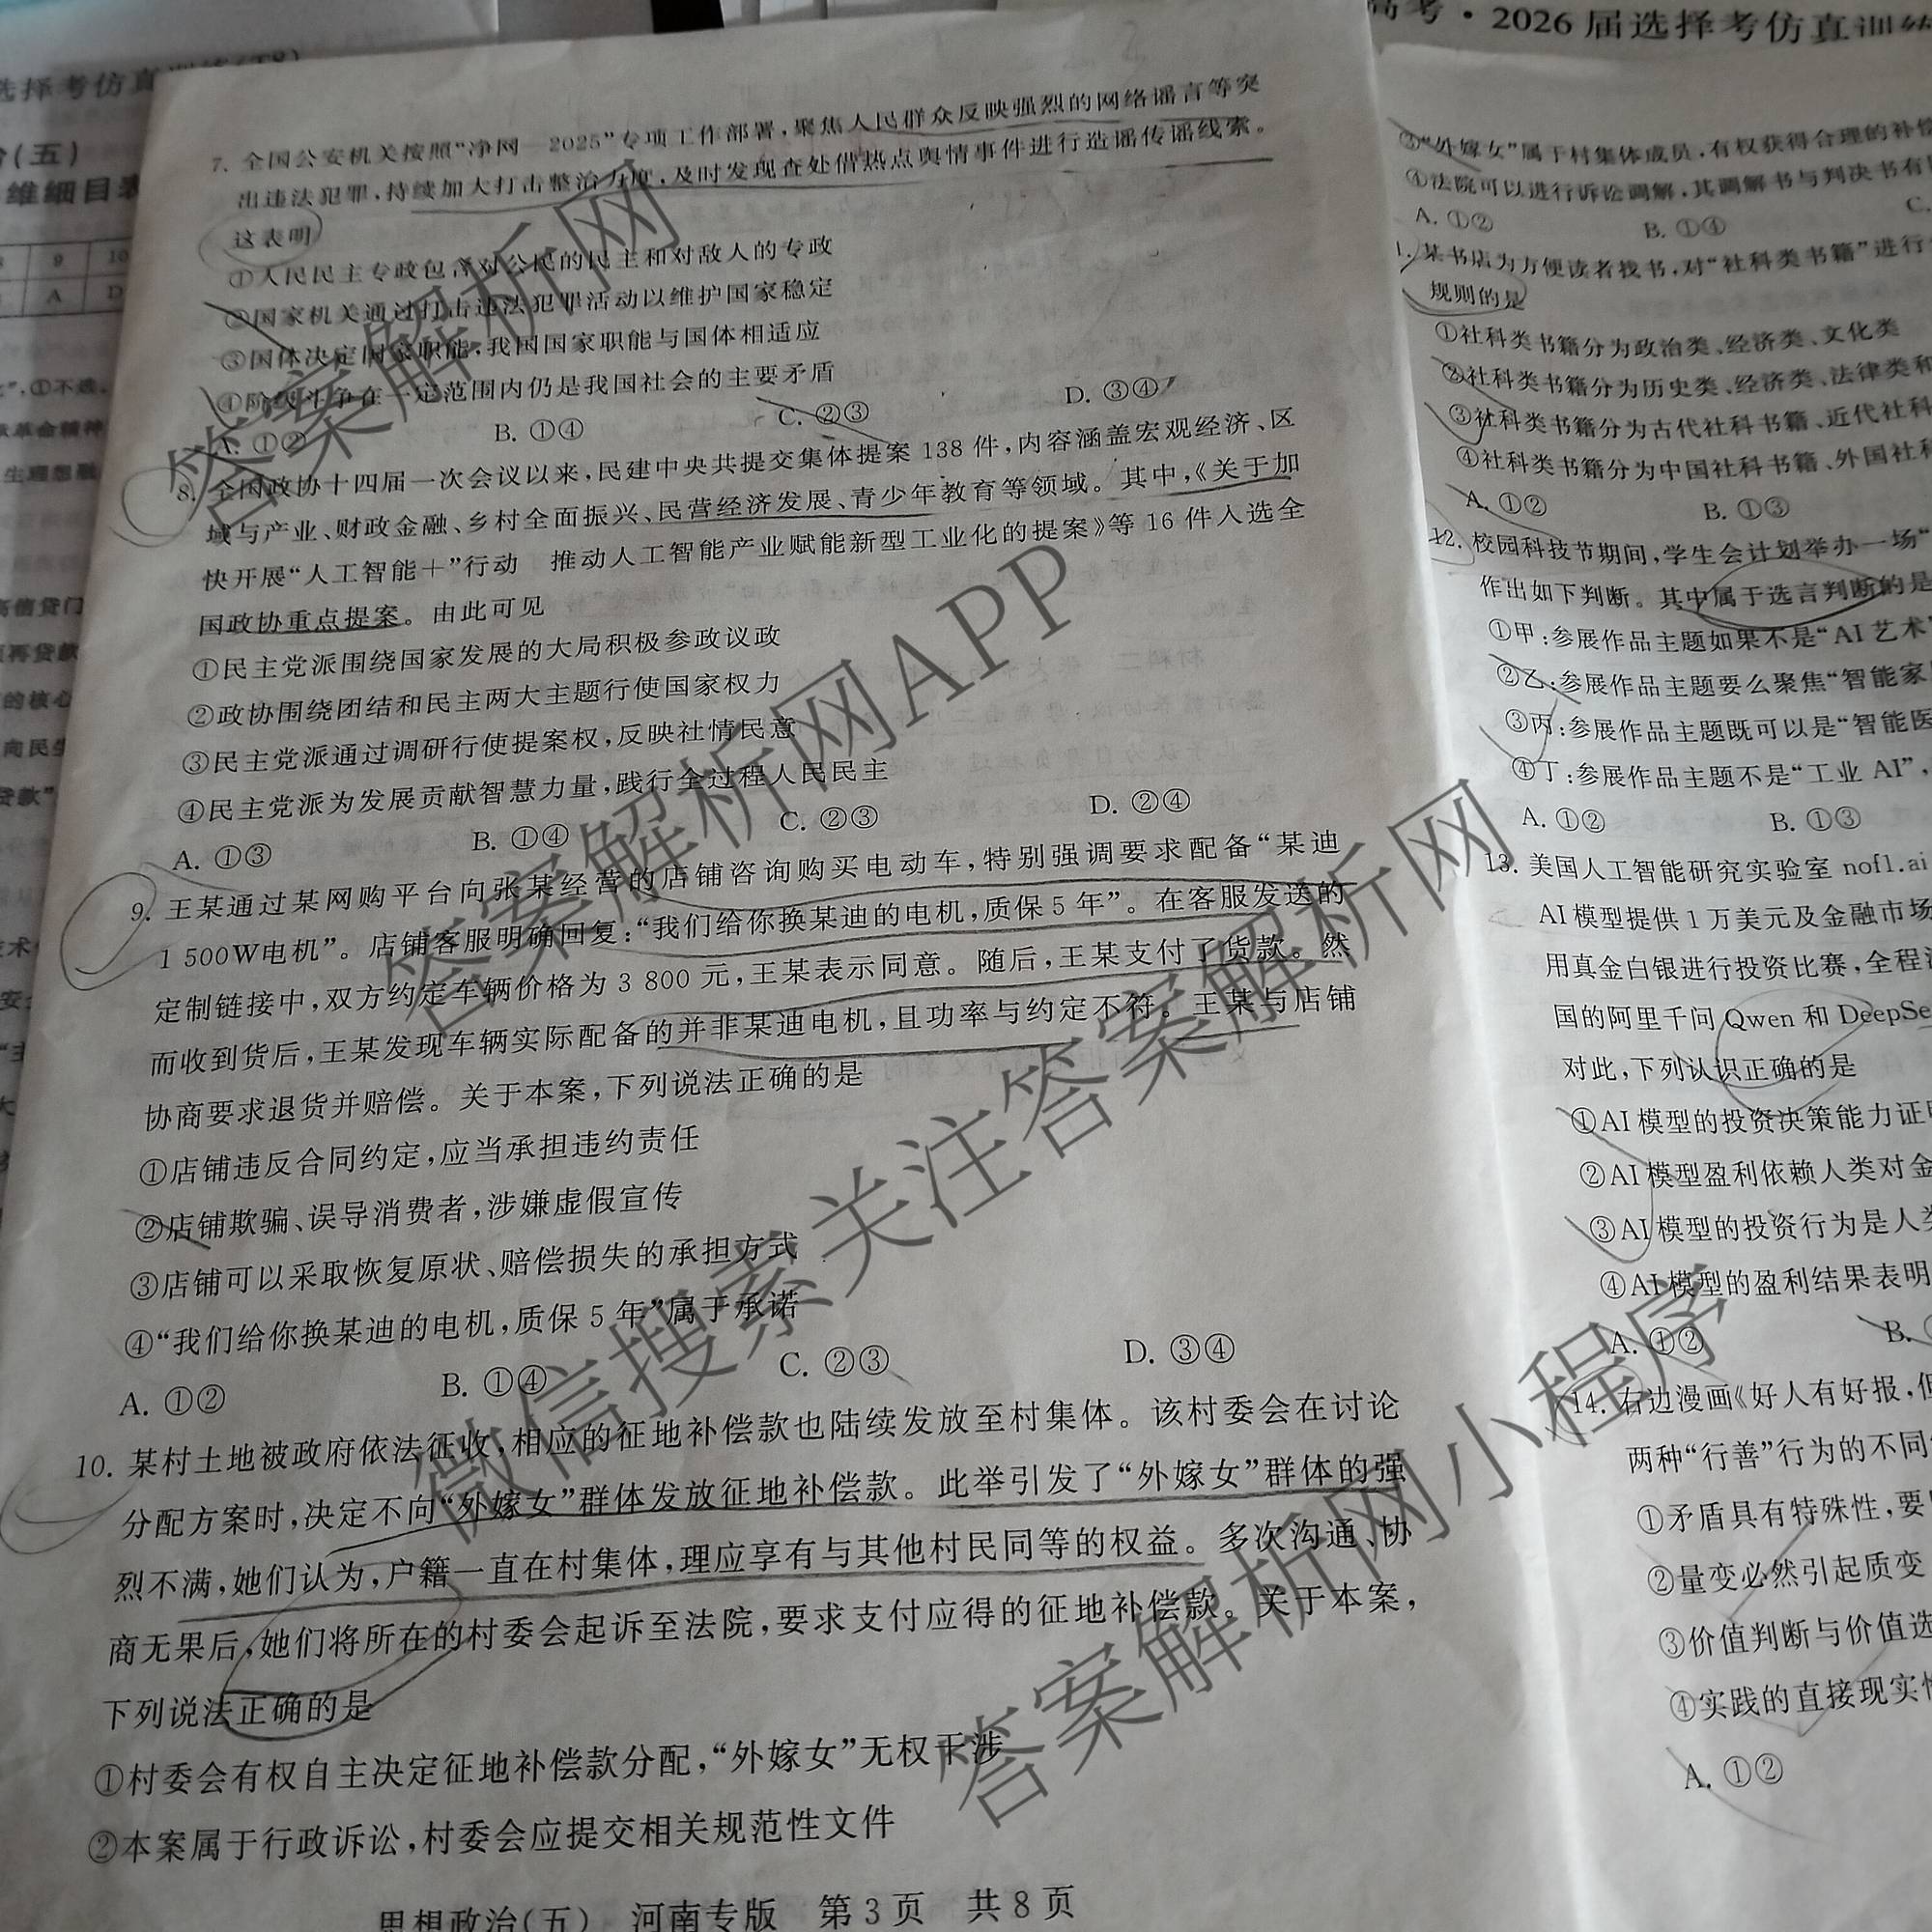 高考·2026届选择考仿真训练
7. 全国公安机关按照“净网—2025”专项工作部署,聚焦人民群众反映强烈的网络谣言等突
出违法犯罪,持续加大打击整治力度,及时发现查处借热点舆情事件进行造谣传谣线索。
这表明
①人民民主专政包含对公民的民主和对敌人的专政
②国家机关通过打击违法犯罪活动以维护国家稳定
③国体决定国家职能,我国国家职能与国体相适应
④阶级斗争在一定范围内仍是我国社会的主要矛盾
A. ①② B. ①④ C. ②③ D. ③④
8. 全国政协十四届一次会议以来,民建中央共提交集体提案 138 件,内容涵盖宏观经济、区
域与产业、财政金融、乡村全面振兴、民营经济发展、青少年教育等领域。其中,《关于加
快开展“人工智能+”行动 推动人工智能产业赋能新型工业化的提案》等 16 件入选全
国政协重点提案。由此可见
①民主党派围绕国家发展的大局积极参政议政
②政协围绕团结和民主两大主题行使国家权力
③民主党派通过调研行使提案权,反映社情民意
④民主党派为发展贡献智慧力量,践行全过程人民民主
A. ①③ B. ①④ C. ②③ D. ②④
9. 王某通过某网购平台向张某经营的店铺咨询购买电动车,特别强调要求配备“某迪
1 500W电机”。店铺客服明确回复:“我们给你换某迪的电机,质保 5 年”。在客服发送的
定制链接中,双方约定车辆价格为 3 800 元,王某表示同意。随后,王某支付了货款。然
而收到货后,王某发现车辆实际配备的并非某迪电机,且功率与约定不符。王某与店铺
协商要求退货并赔偿。关于本案,下列说法正确的是
①店铺违反合同约定,应当承担违约责任
②店铺欺骗、误导消费者,涉嫌虚假宣传
③店铺可以采取恢复原状、赔偿损失的承担方式
④“我们给你换某迪的电机,质保 5 年”属于承诺
A. ①② B. ①④ C. ②③ D. ③④
10. 某村土地被政府依法征收,相应的征地补偿款也陆续发放至村集体。该村委会在讨论
分配方案时,决定不向“外嫁女”群体发放征地补偿款。此举引发了“外嫁女”群体的强
烈不满,她们认为,户籍一直在村集体,理应享有与其他村民同等的权益。多次沟通、协
商无果后,她们将所在的村委会起诉至法院,要求支付应得的征地补偿款。关于本案,
下列说法正确的是
①村委会有权自主决定征地补偿款分配,“外嫁女”无权干涉
②本案属于行政诉讼,村委会应提交相关规范性文件
思想政治(五) 河南专版 第 3 页 共 8 页
③“外嫁女”属于村集体成员,有权获得合理的补偿
④法院可以进行诉讼调解,其调解书与判决书有
A. ①② B. ①④ C.
某书店为方便读者找书,对“社科类书籍”进行
规则的是
①社科类书籍分为政治类、经济类、文化类
②社科类书籍分为历史类、经济类、法律类和
③社科类书籍分为古代社科书籍、近代社科
④社科类书籍分为中国社科书籍、外国社科
A. ①② B. ①③
12. 校园科技节期间,学生会计划举办一场“
作出如下判断。其中属于选言判断的是
①甲:参展作品主题如果不是“AI 艺术”
②乙:参展作品主题要么聚焦“智能家
③丙:参展作品主题既可以是“智能医
④丁:参展作品主题不是“工业 AI”,
A. ①② B. ①③
13. 美国人工智能研究实验室 nof1.ai
AI 模型提供 1 万美元及金融市场
用真金白银进行投资比赛,全程
国的阿里千问 Qwen 和 DeepSe
对此,下列认识正确的是
①AI 模型的投资决策能力证
②AI 模型盈利依赖人类对金
③AI 模型的投资行为是人
④AI 模型的盈利结果表明
A. ①② B.
14. 右边漫画《好人有好报,但
两种“行善”行为的不同
①矛盾具有特殊性,要
②量变必然引起质变
③价值判断与价值选
④实践的直接现实性
A. ①②
答案解析网
答案解析网APP
微信搜索关注答案解析网
答案解析网小程序